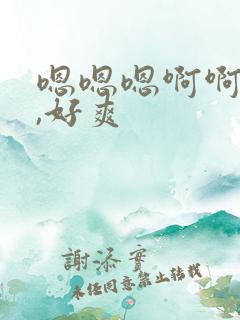 嗯嗯嗯啊啊
,好爽
謝添實
未任同意禁止转载